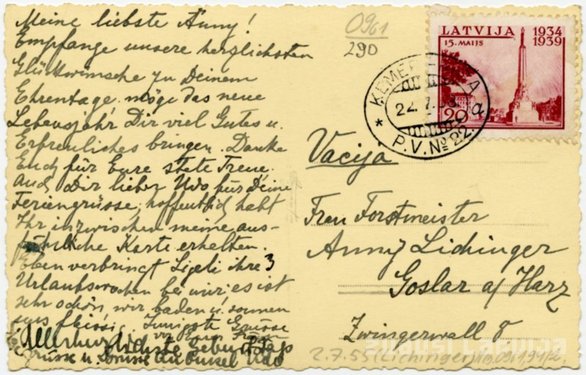 Meine liebste Änny!
Empfange unsere herzlichsten
Glückwünsche zu Deinem
Ehrentage. möge das neue
Lebensjahr Dir viel Gutes u.
Erfreuliches bringen. Danke
Euch für Eure stete Treue.
Auch Dir lieber Udo für Deine
Feriengrüsse, hoffentlich habt
Ihr inzwischen meine aus-
führliche Karte erhalten.
Eben verbringt ihre 3
Urlaubswochen bei mir, es ist
sehr schön, wir baden u. sonnen
uns fleissig. Grüsse
Allerherzlichste Geburtstags
grüsse u. Udo
0961
290
LATVIJA 1934
15. MAIJS 1939
ĶEMERI
22. 7.
P.V. № 22
Vācija
Frau Forstmeister
Änny Lichinger
Goslar a/Harz
Zwingerwall 8
ZUDUSI LATVIJA